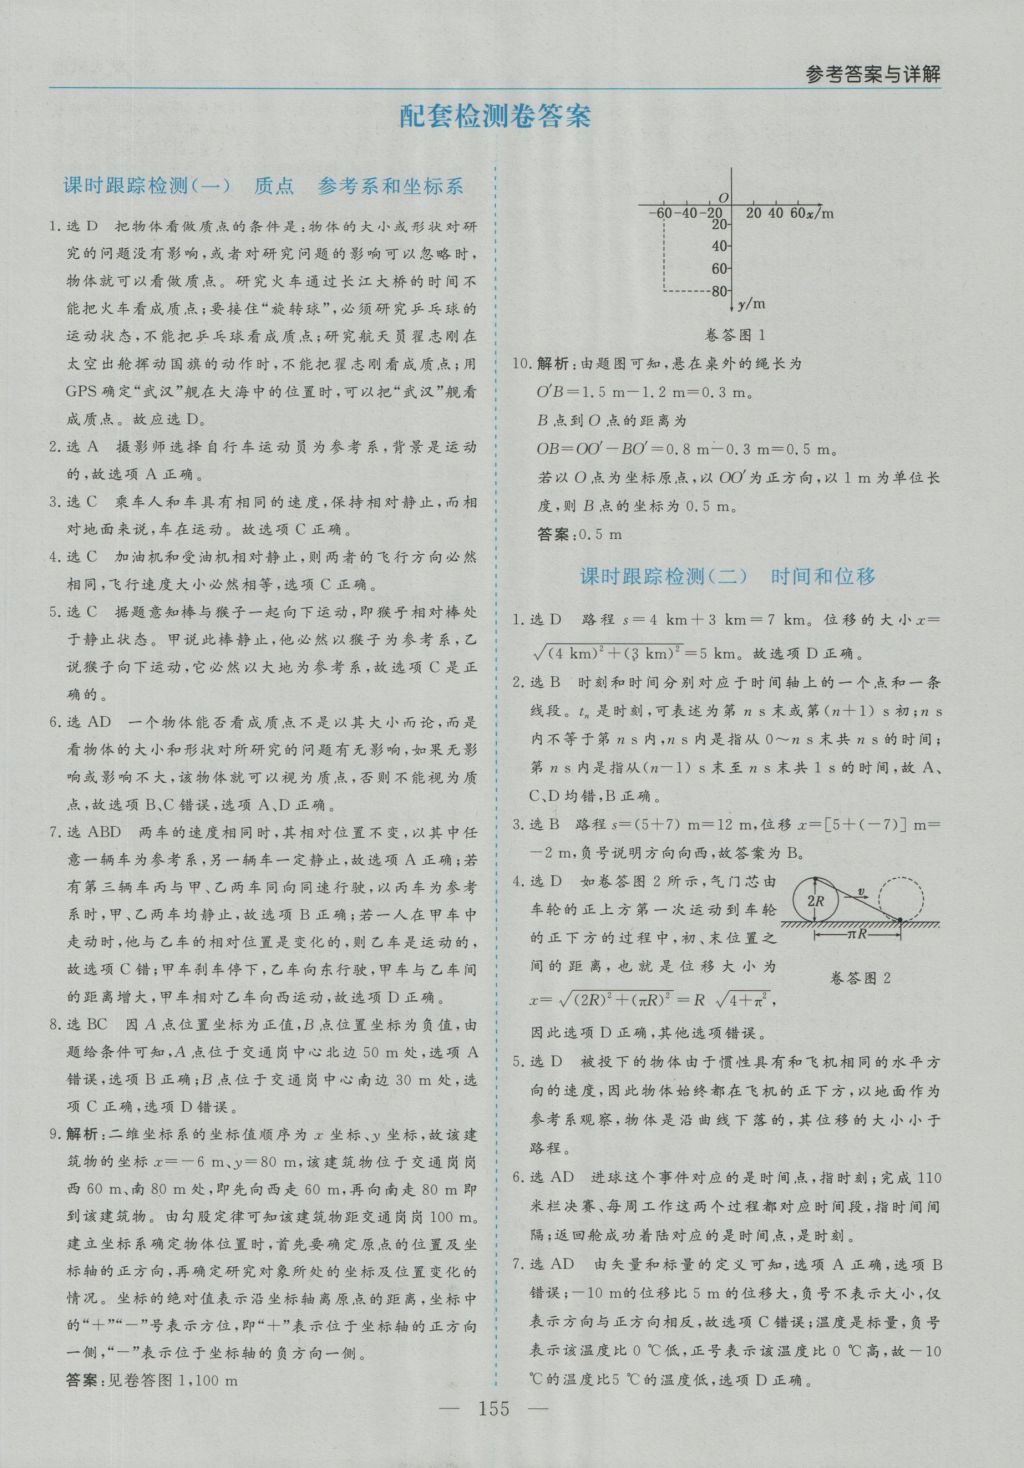 参考答案与详解
配套检测卷答案
课时跟踪检测(一) 质点 参考系和坐标系
1. 选 D 把物体看做质点的条件是:物体的大小或形状对研
究的问题没有影响,或者对研究问题的影响可以忽略时,
物体就可以看做质点。研究火车通过长江大桥的时间不
能把火车看成质点;要接住“旋转球”,必须研究乒乓球的
运动状态,不能把乒乓球看成质点;研究航天员翟志刚在
太空出舱挥动国旗的动作时,不能把翟志刚看成质点;用
GPS 确定“武汉”舰在大海中的位置时,可以把“武汉”舰看
成质点。故应选 D。
2. 选 A 摄影师选择自行车运动员为参考系,背景是运动
的,故选项 A 正确。
3. 选 C 乘车人和车具有相同的速度,保持相对静止,而相
对地面来说,车在运动。故选项 C 正确。
4. 选 C 加油机和受油机相对静止,则两者的飞行方向必然
相同,飞行速度大小必然相等,选项 C 正确。
5. 选 C 据题意知棒与猴子一起向下运动,即猴子相对棒处
于静止状态。甲说此棒静止,他必然以猴子为参考系,乙
说猴子向下运动,它必然以大地为参考系,故选项 C 是正
确的。
6. 选 AD 一个物体能否看成质点不是以其大小而论,而是
看物体的大小和形状对所研究的问题有无影响,如果无影
响或影响不大,该物体就可以视为质点,否则不能视为质
点,故选项 B、C 错误,选项 A、D 正确。
7. 选 ABD 两车的速度相同时,其相对位置不变,以其中任
意一辆车为参考系,另一辆车一定静止,故选项 A 正确;若
有第三辆车丙与甲、乙两车同向同速行驶,以丙车为参考
系时,甲、乙两车均静止,故选项 B 正确;若一人在甲车中
走动时,他与乙车的相对位置是变化的,则乙车是运动的,
故选项 C 错;甲车刹车停下,乙车向东行驶,甲车与乙车间
的距离增大,甲车相对乙车向西运动,故选项 D 正确。
8. 选 BC 因 A 点位置坐标为正值,B 点位置坐标为负值,由
题给条件可知,A 点位于交通岗中心北边 50 m 处,选项 A
错误,选项 B 正确;B 点位于交通岗中心南边 30 m 处,选
项 C 正确,选项 D 错误。
9. 解析:二维坐标系的坐标值顺序为 x 坐标、y 坐标,故该建
筑物的坐标 x=-6 m、y=80 m,该建筑物位于交通岗岗
西 60 m、南 80 m 处,即先向西走 60 m,再向南走 80 m 即
到该建筑物。由勾股定律可知该建筑物距交通岗岗 100 m。
建立坐标系确定物体位置时,首先要确定原点的位置及坐
标轴的正方向,再确定研究对象所处的坐标及位置变化的
情况。坐标的绝对值表示沿坐标轴离原点的距离,坐标中
的“+”“-”号表示方位,即“+”表示位于坐标轴的正方向
一侧,“-”表示位于坐标轴的负方向一侧。
答案:见卷答图 1,100 m
O
-60 -40 -20 20 40 60 x/m
20
40
60
80
y/m
卷答图 1
10. 解析:由题图可知,悬在桌外的绳长为
O′B=1.5 m-1.2 m=0.3 m。
B 点到 O 点的距离为
OB=OO′-BO′=0.8 m-0.3 m=0.5 m。
若以 O 点为坐标原点,以 OO′为正方向,以 1 m 为单位长
度,则 B 点的坐标为 0.5 m。
答案:0.5 m
课时跟踪检测(二) 时间和位移
1. 选 D 路程 s=4 km+3 km=7 km。位移的大小 x=
√(4 km)²+(3 km)²=5 km。故选项 D 正确。
2. 选 B 时刻和时间分别对应于时间轴上的一个点和一条
线段。tₙ 是时刻,可表述为第 n s 末或第(n+1) s 初;n s
内不等于第 n s 内,n s 内是指从 0~n s 末共 n s 的时间;
第 n s 内是指从(n-1) s 末至 n s 末共 1 s 的时间,故 A、
C、D 均错,B 正确。
3. 选 B 路程 s=(5+7) m=12 m,位移 x=[5+(-7)] m=
-2 m,负号说明方向向西,故答案为 B。
4. 选 D 如卷答图 2 所示,气门芯由
车轮的正上方第一次运动到车轮
的正下方的过程中,初、末位置之
间的距离,也就是位移大小为
x=√(2R)²+(πR)²=R √4+π²,
因此选项 D 正确,其他选项错误。
2R
v
πR
卷答图 2
5. 选 D 被投下的物体由于惯性具有和飞机相同的水平方
向的速度,因此物体始终都在飞机的正下方,以地面作为
参考系观察,物体是沿曲线下落的,其位移的大小小于
路程。
6. 选 AD 进球这个事件对应的是时间点,指时刻;完成 110
米栏决赛、每周工作这两个过程都对应时间段,指时间间
隔;返回舱成功着陆对应的是时间点,是时刻。
7. 选 AD 由矢量和标量的定义可知,选项 A 正确,选项 B
错误;-10 m的位移比 5 m 的位移大,负号不表示大小,仅
表示方向与正方向相反,故选项 C 错误;温度是标量,负号
表示该温度比 0 ℃低,正号表示该温度比 0 ℃高,故-10
℃的温度比5 ℃的温度低,选项 D 正确。
— 155 —